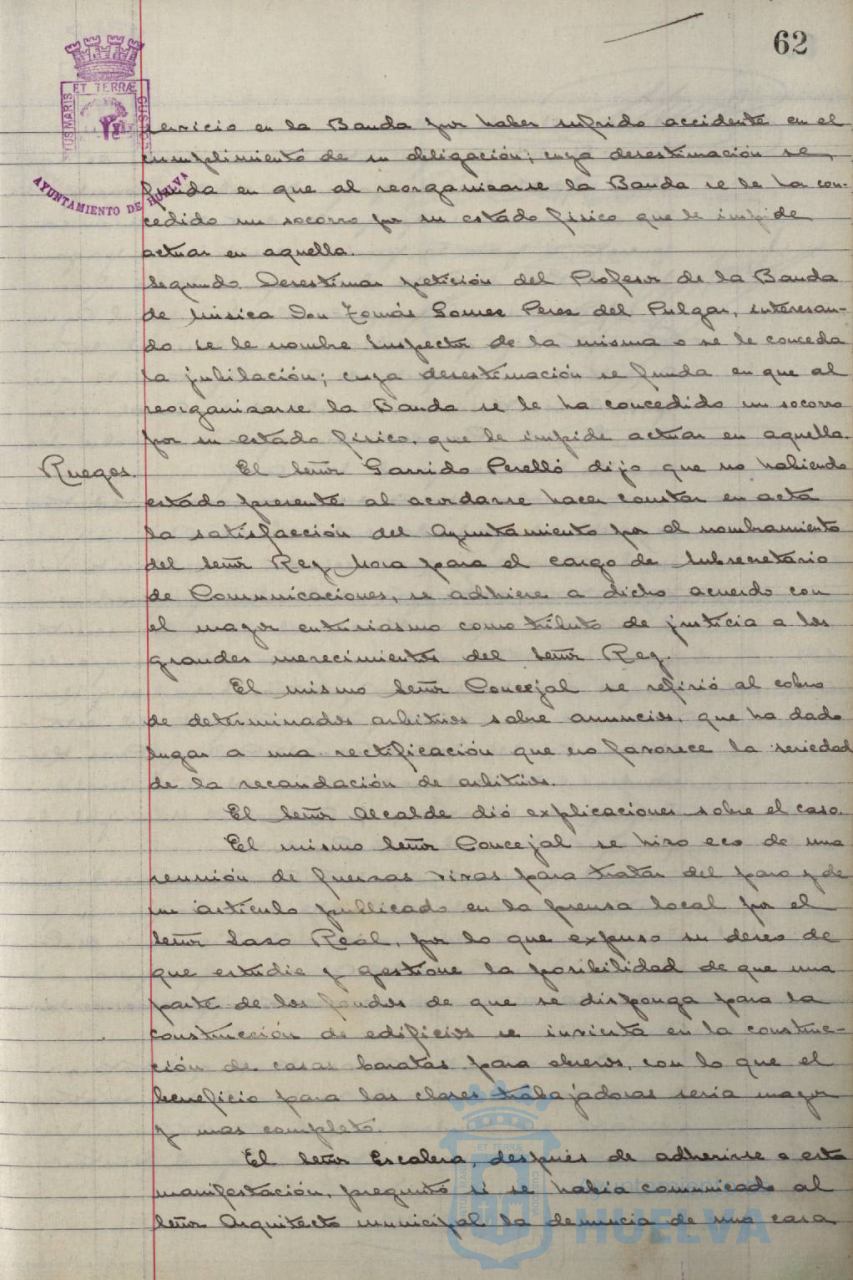 62
ET TERRÆ
AYUNTAMIENTO DE HUELVA
servicio en la Banda por haber sufrido accidente en el
cumplimiento de su obligación; cuya desestimación se
funda en que al reorganizarse la Banda se le ha con-
cedido un socorro por su estado físico que le impide
actuar en aquella.
Segundo. Desestimar petición del Profesor de la Banda
de Música Don Tomás Gomez Perez del Pulgar, interesan-
do se le nombre Inspector de la misma o se le conceda
la jubilación; cuya desestimación se funda en que al
reorganizarse la Banda se le ha concedido un socorro
por su estado físico, que le impide actuar en aquella.
Ruegos. El Señor Garrido Perelló dijo que no habiendo
estado presente al acordarse hacer constar en acta
la satisfacción del Ayuntamiento por el nombramiento
del Señor Rey Mora para el cargo de Subsecretario
de Comunicaciones, se adhiere a dicho acuerdo con
el mayor entusiasmo como tributo de justicia a los
grandes merecimientos del Señor Rey.
El mismo Señor Concejal se refirió al cobro
de determinados arbitrios sobre anuncios, que ha dado
lugar a una rectificación que no favorece la seriedad
de la recaudación de arbitrios.
El Señor Alcalde dió explicaciones sobre el caso.
El mismo Señor Concejal se hizo eco de una
reunión de fuerzas vivas para tratar del paro y de
un artículo publicado en la prensa local por el
Señor Laso Real, por lo que expuso su deseo de
que estudie y gestione la posibilidad de que una
parte de los fondos de que se disponga para la
construcción de edificios se invierta en la construc-
ción de casas baratas para obreros, con lo que el
beneficio para las clases trabajadoras sería mayor
y mas completo.
El Señor Escalera, después de adherirse a esta
manifestación, preguntó si se había comunicado al
Señor Arquitecto municipal la denuncia de una casa
HUELVA